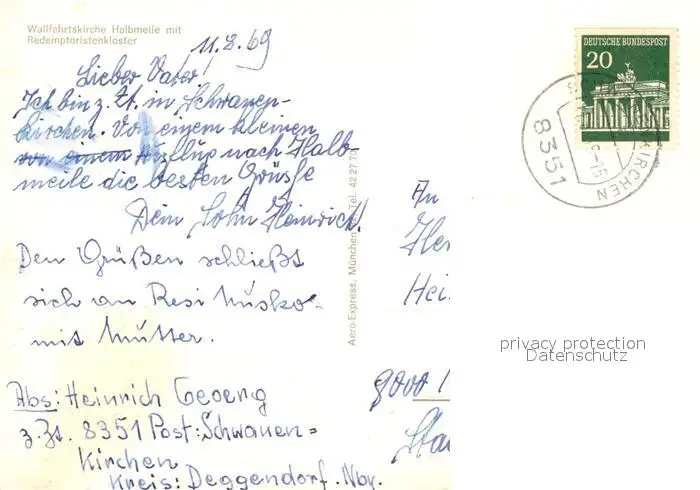 Wallfahrtskirche Halbmeile mit
Redemptoristenkloster
11.8.69
Lieber Vater!
Ich bin z. Zt. in Schwanen-
kirchen. Von einem kleinen
von einem Ausflug nach Halb-
meile die besten Grüße
Dein Sohn Heinrich!
Den Grüßen schließt
sich an Resi
mit Mutter.
Abs: Heinrich Georg
z. Zt. 8351 Post: Schwanen=
kirchen
Kreis: Deggendorf. Nby.
Aero-Express, München Tel. 42 27 70
DEUTSCHE BUNDESPOST
20
8351
KIRCHEN
An
Her
Hei
privacy protection
Datenschutz